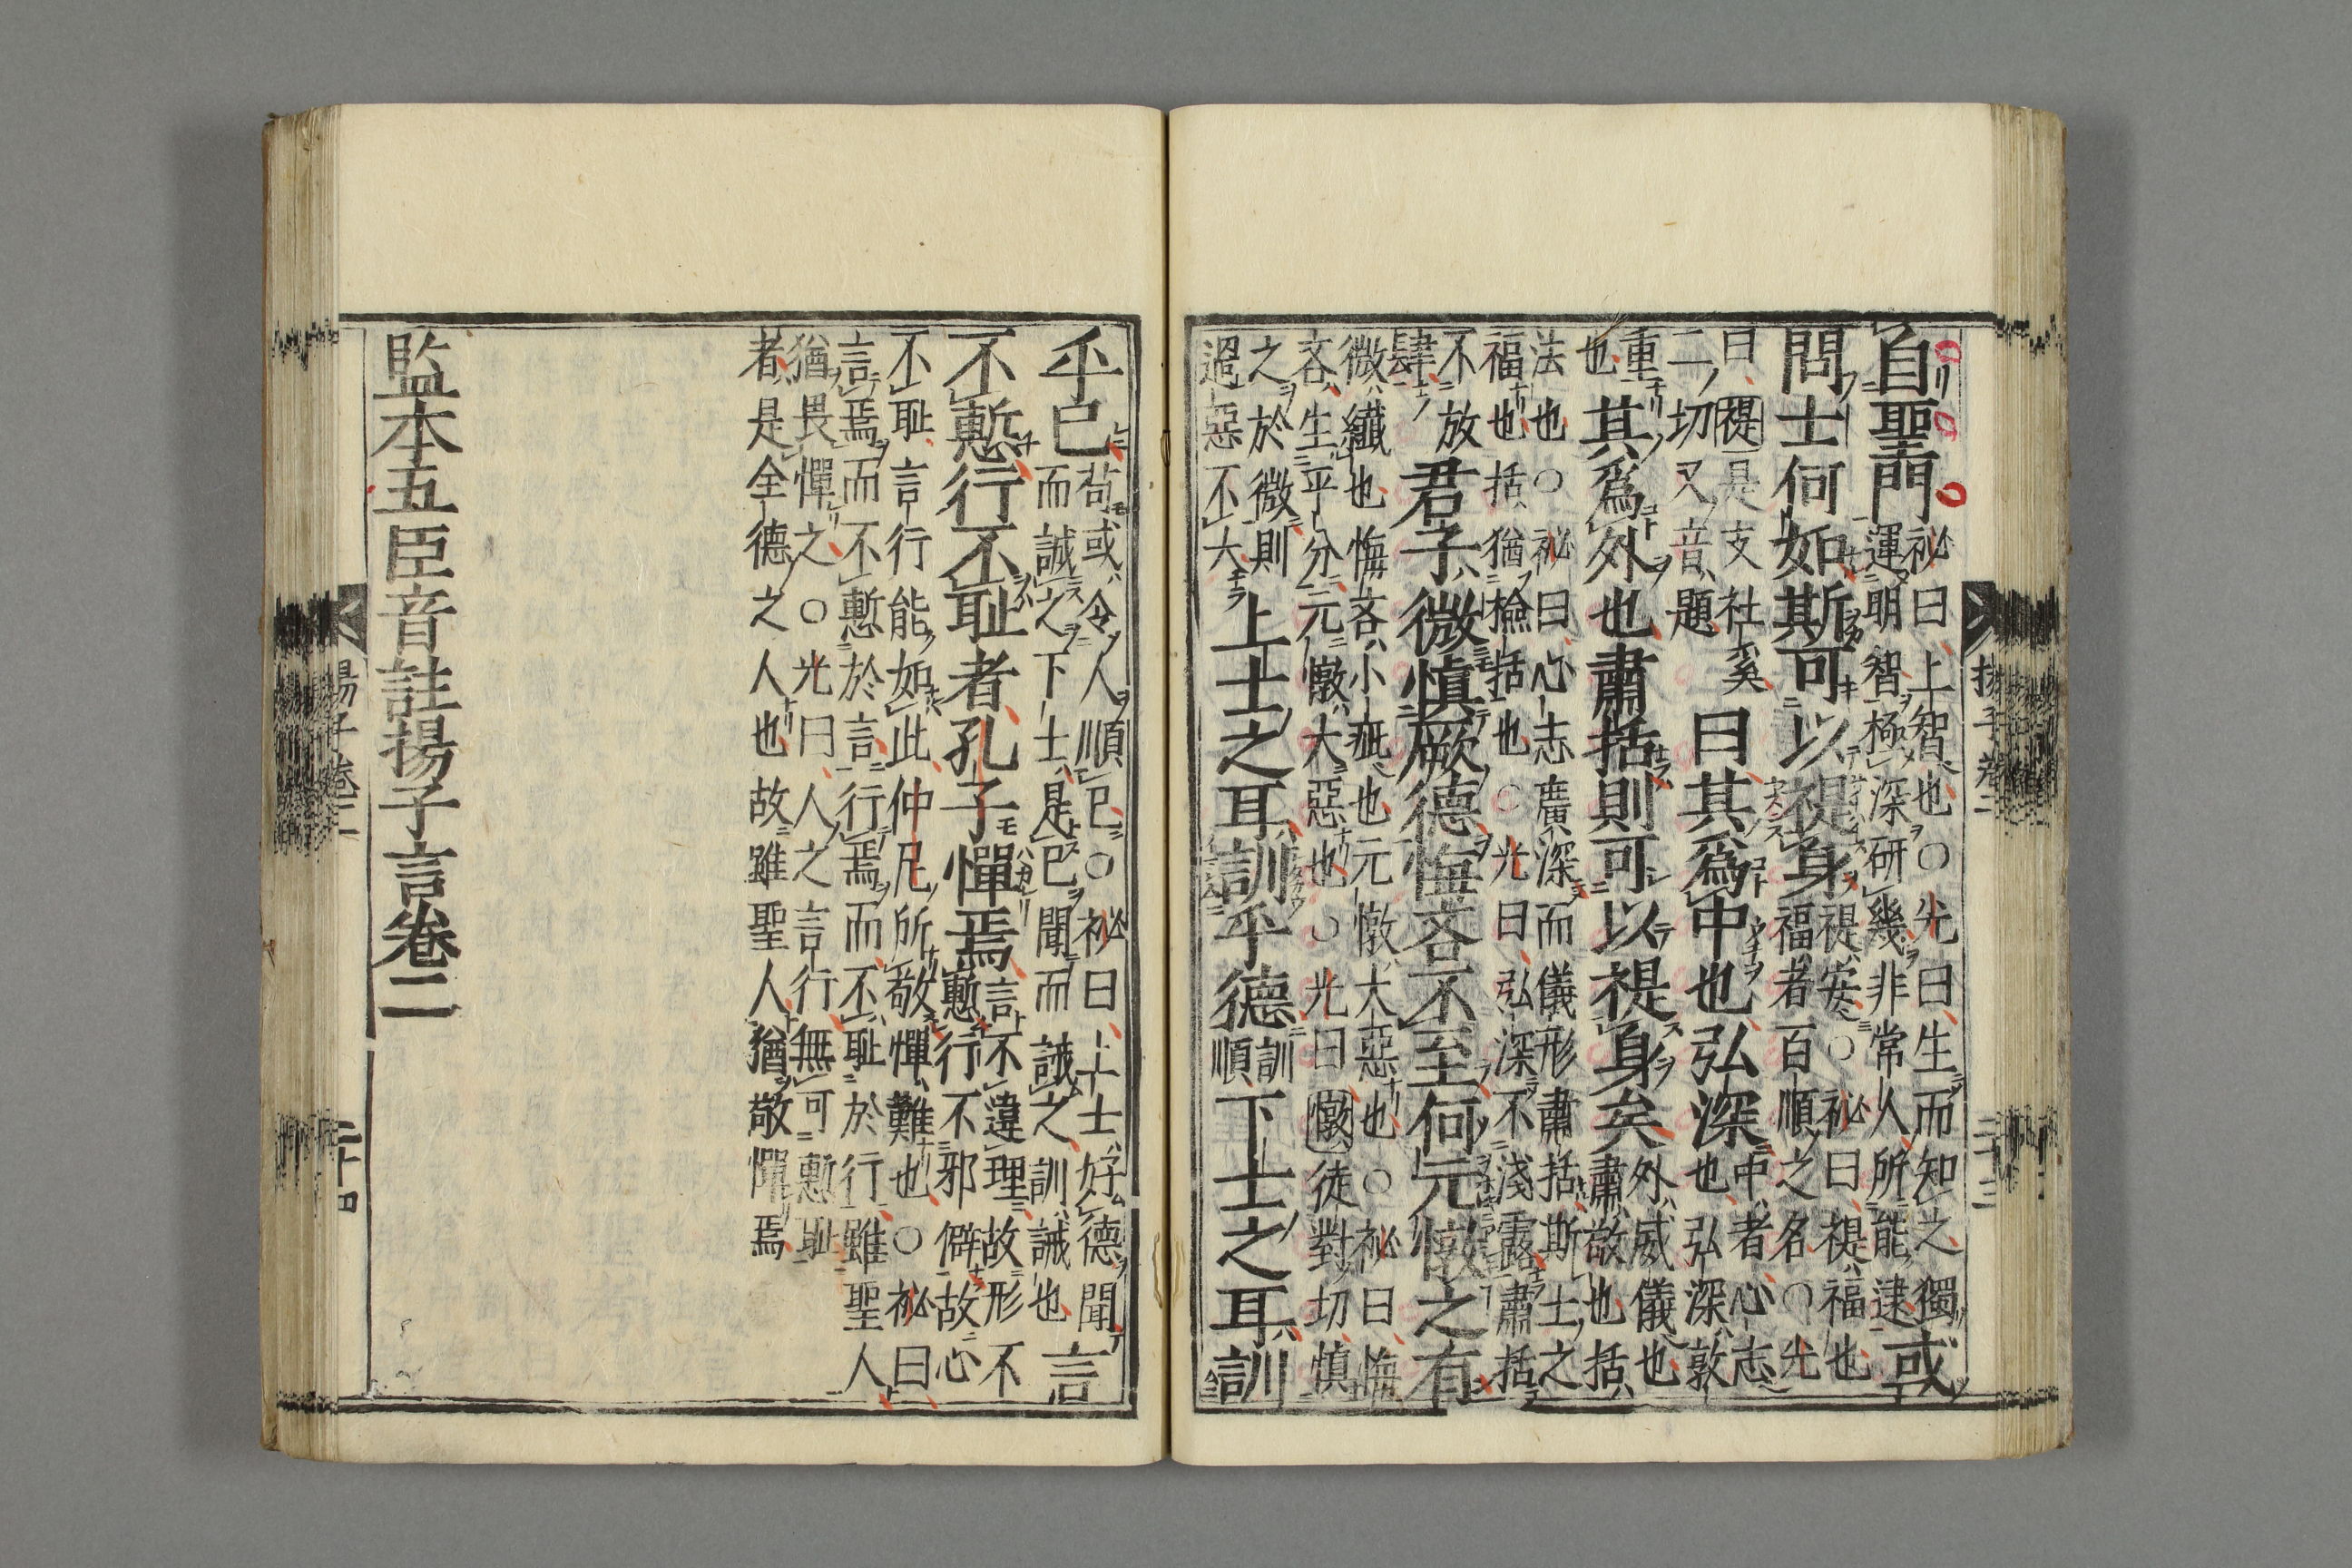 揚子卷二
二十三
自聖門
祕曰上智也○光曰生而知之獨
運明智極深研幾非常人所能逮
或
問士何如斯可以禔身
禔安○祕曰禔福也
福者百順之名○光
曰禔是支社奚
二切又音題
曰其爲中也弘深
中者心志
也弘深敦
重
也
其爲外也肅括則可以禔身矣
外威儀也
肅敬也括
法也○祕曰心志廣深而儀形肅括斯士之
福也括猶檢括也○光曰弘深不淺露肅括
不放
肆
君子微愼厥德悔吝不至何元憞之有
微纖也悔吝小疵也元憞大惡也○祕曰悔
吝生平分元憞大惡也○光曰憞徒對切愼
之於微則
過惡不大
上士之耳訓乎德
訓
順
下士之耳訓
乎己
苟或令人順己○祕曰上士好德聞
而誠之下士是己聞而誡之訓誡也
言
不慙行不耻者孔子憚焉
言不違理故形不
慙行不邪僻故心
不耻言行能如此仲尼所敬憚難也○祕曰
言焉而不慙於言行焉而不耻於行雖聖人
猶畏憚之○光曰人之言行無可慙耻
者是全德之人也故雖聖人猶敬憚焉
監本五臣音註揚子言卷二
揚子卷二
二十四